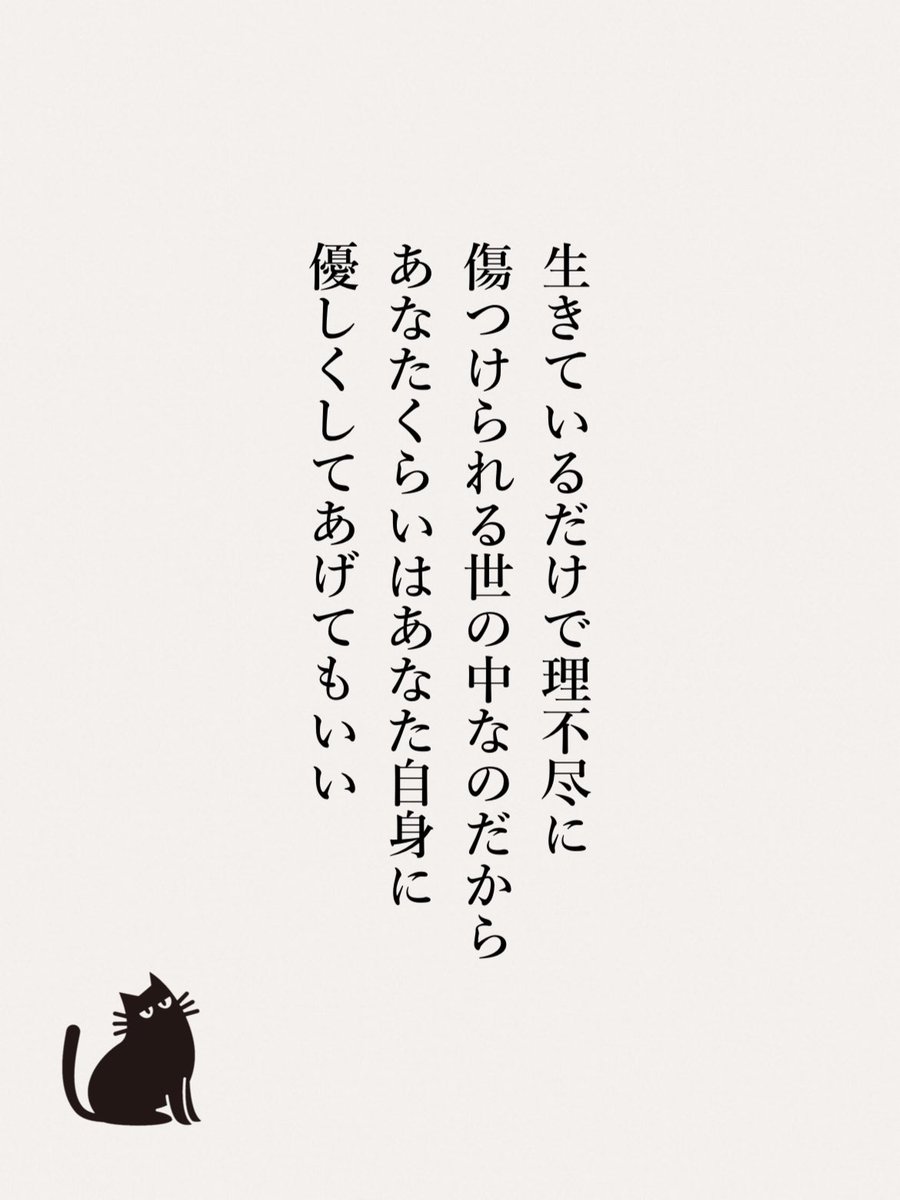 生きているだけで理不尽に
傷つけられる世の中なのだから
あなたくらいはあなた自身に
優しくしてあげてもいい